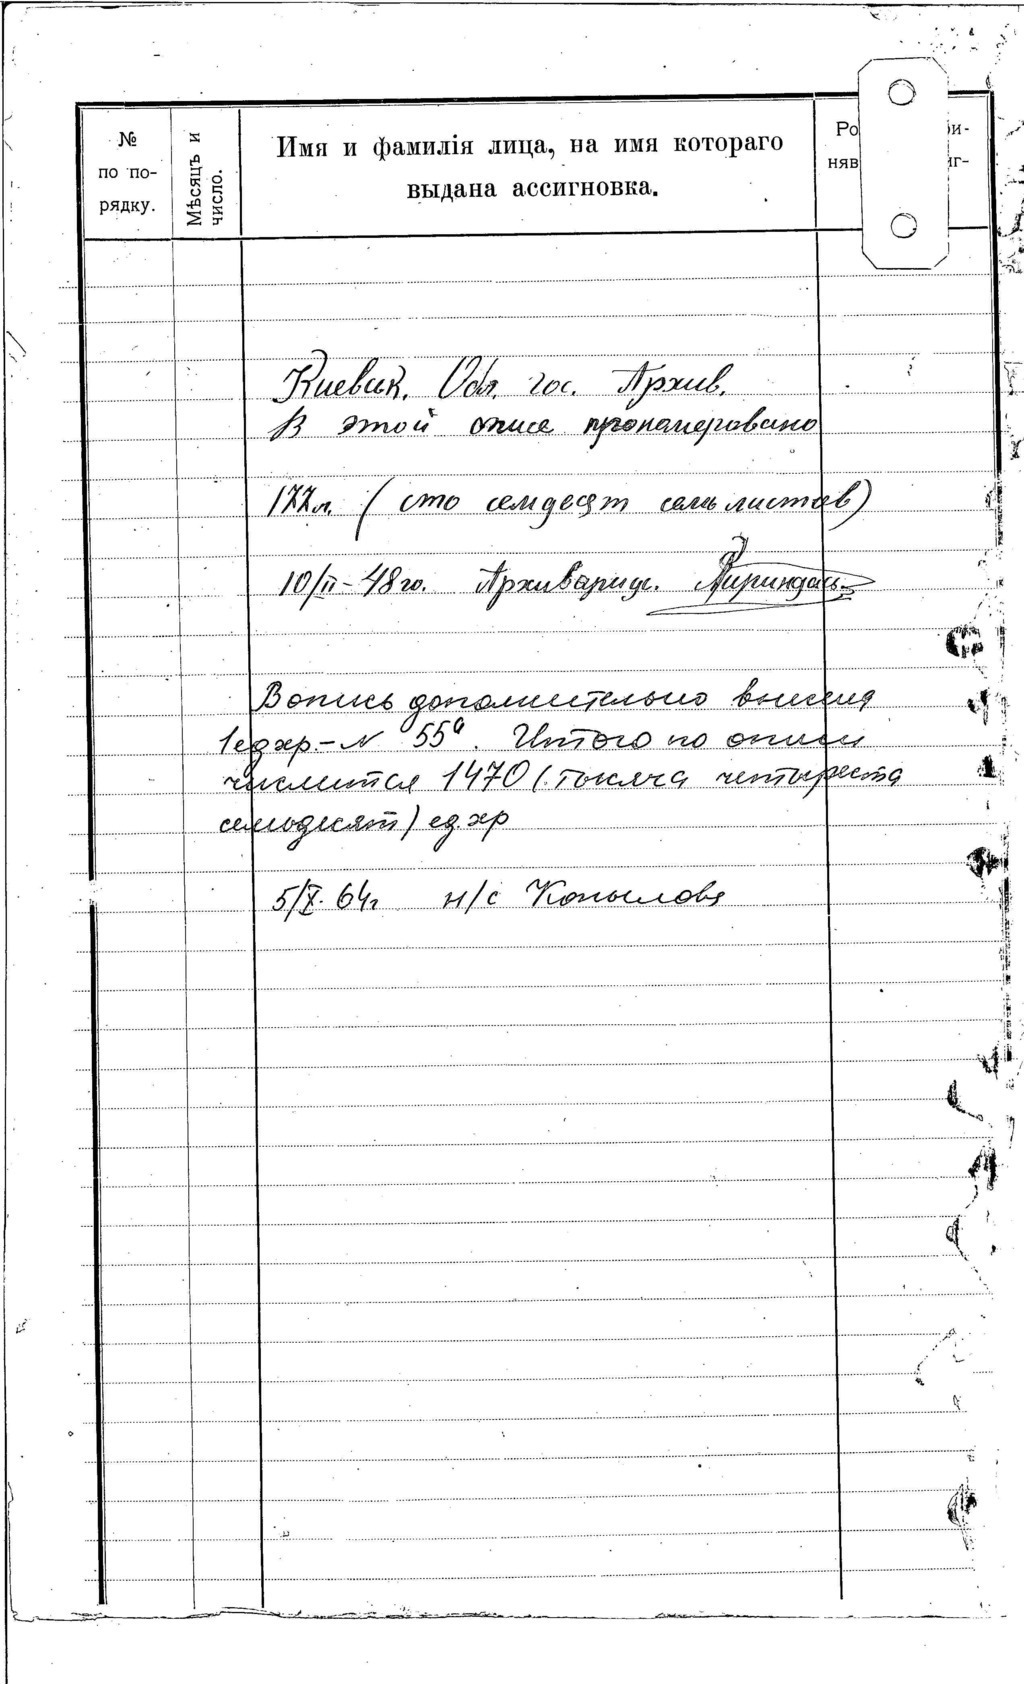 № по по-
рядку.
Мѣсяцъ и
число.
Имя и фамилія лица, на имя котораго
выдана ассигновка.
Ро
няв
и-
иг-
Киевск. Обл. гос. Архив.
В этой описе пронамеровано
177л. (сто семдесят семь листов)
10/II-48го. Архивариус.
Вопись дополнительно внесена
1едхр.-N 55а. Итого по описи
числится 1470 (тысяча четыреста
семьдесят) ед.хр
5/X-64г н/с Копылова